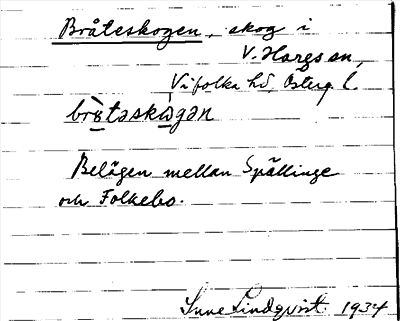 Bråteskogen, skog i
V. Hargs sn,
Vifolka hd, Österg. l.
brωtəskωgən
Belägen mellan Spällinge
och Folkebo.
Sune Lindqvist. 1934